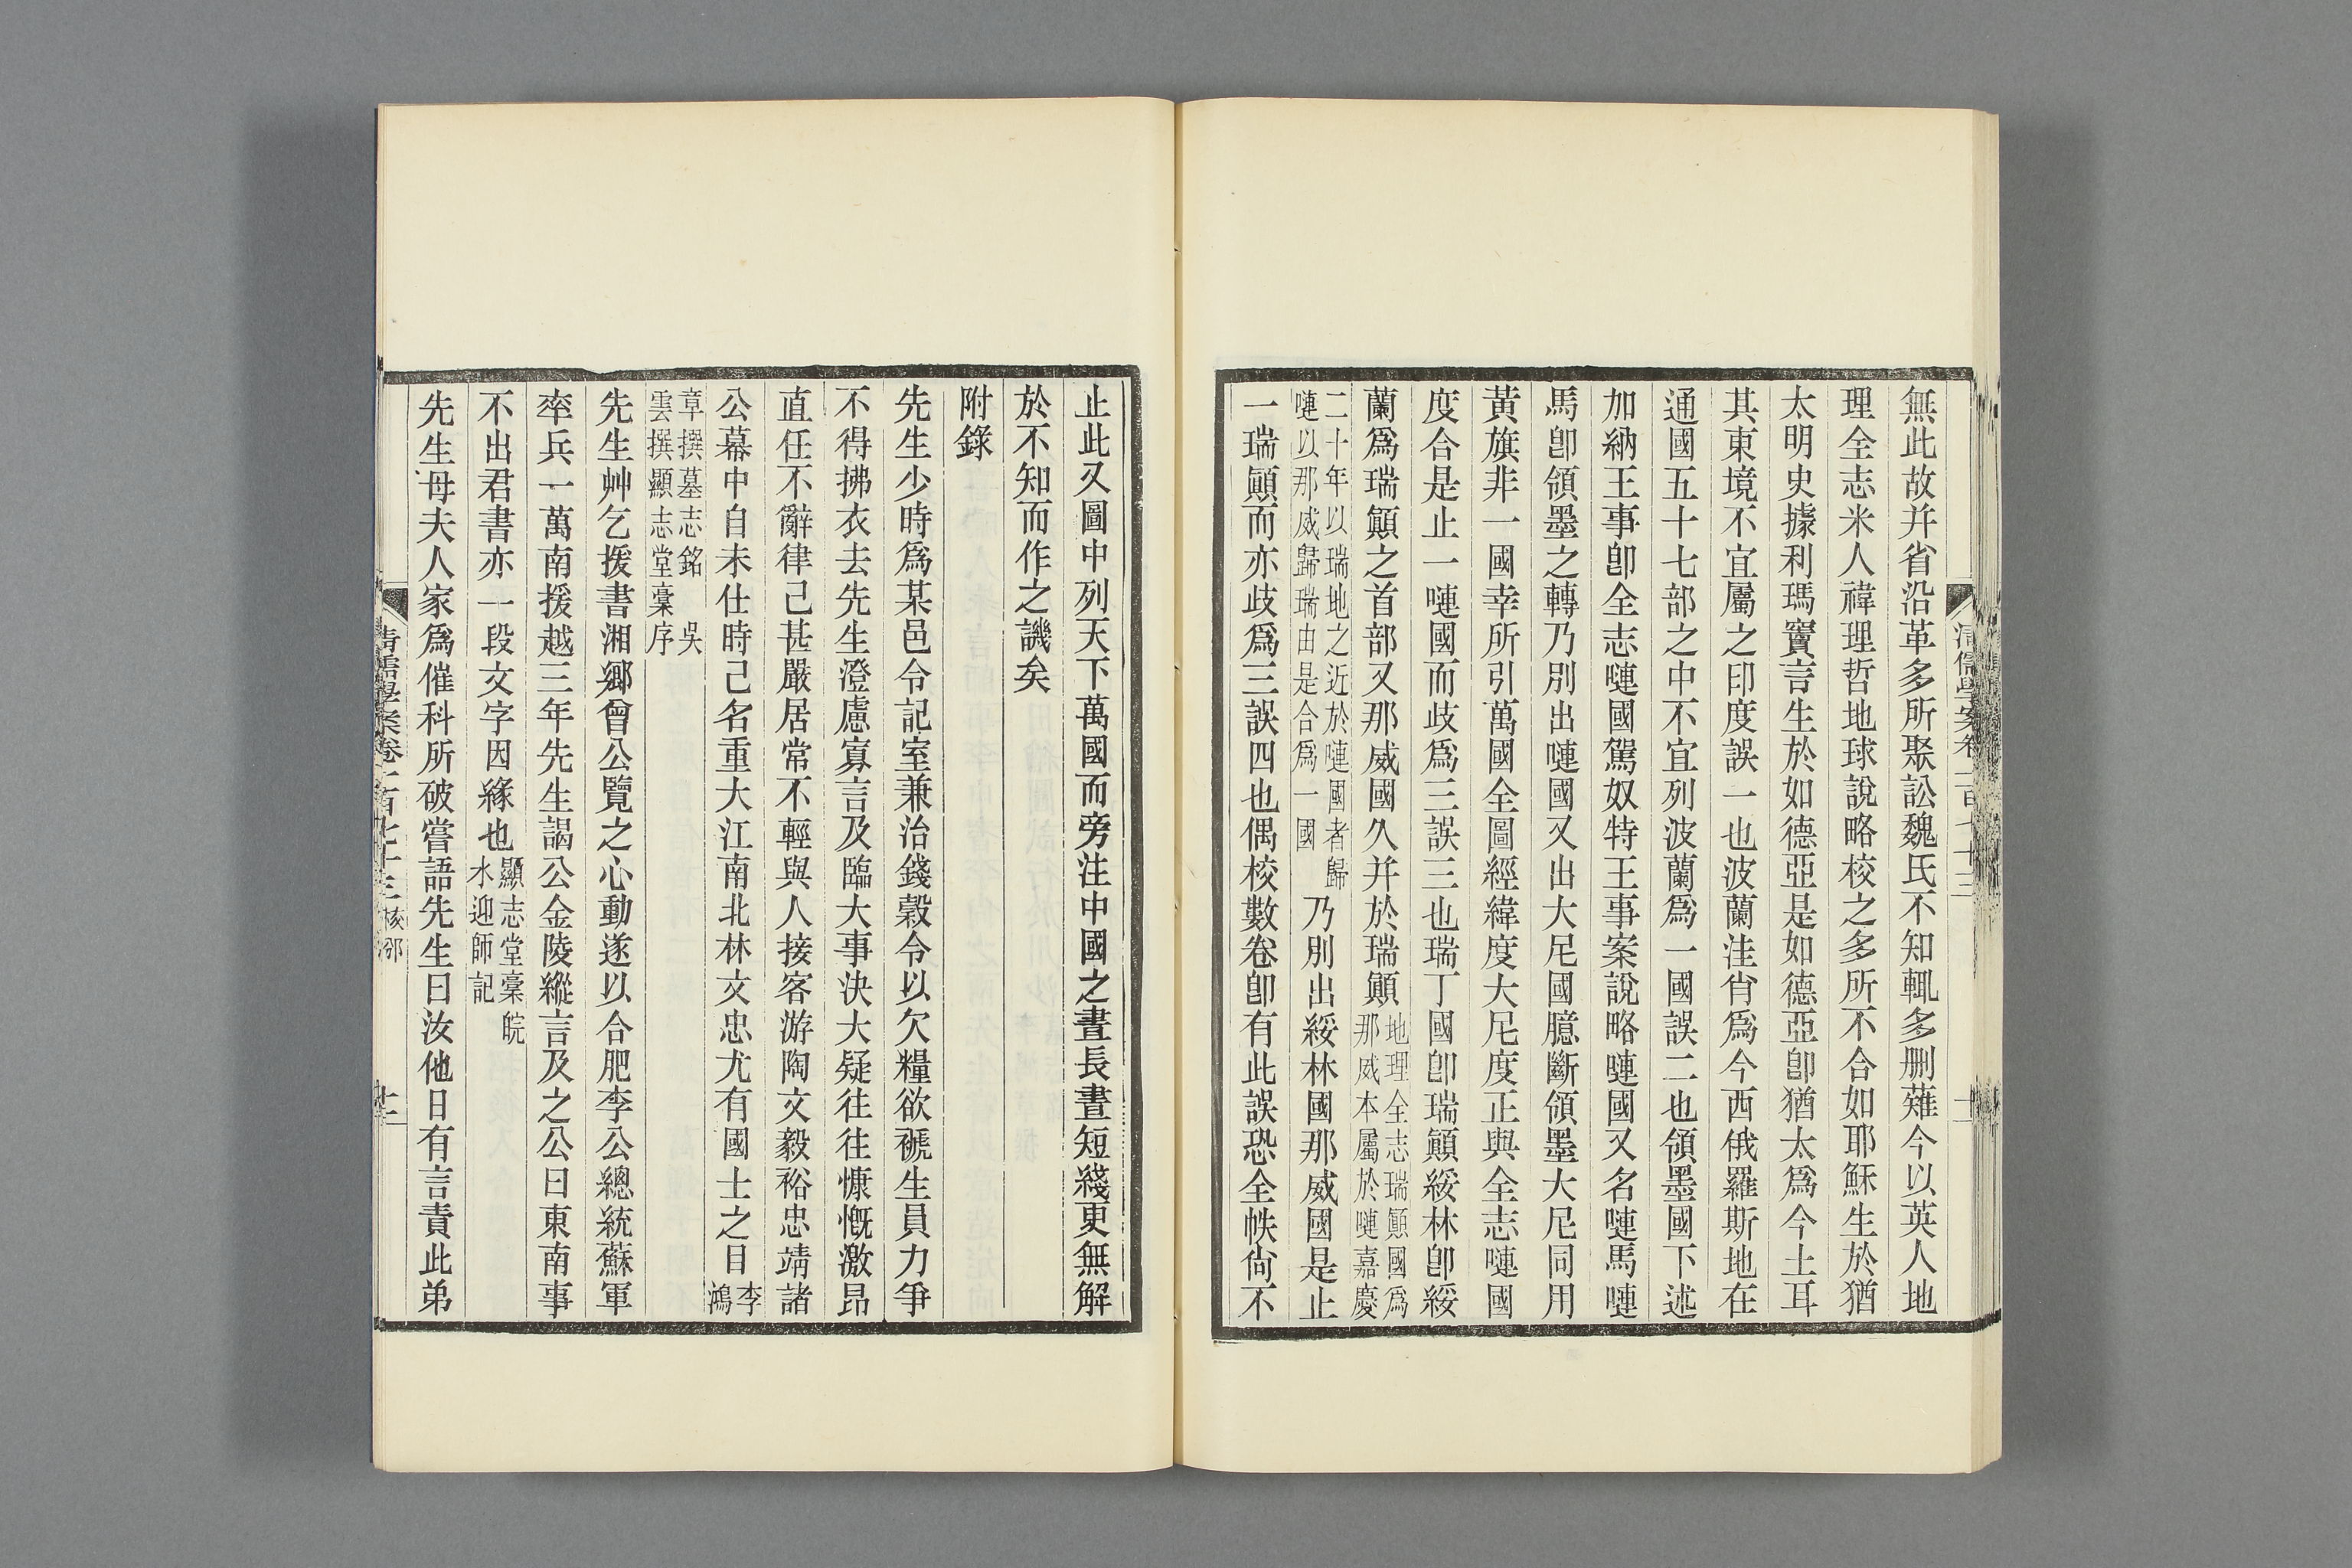 無此故并省沿革多所聚訟魏氏不知輒多刪薙今以英人地
理全志米人禕理哲地球說略校之多所不合如耶穌生於猶
太明史據利瑪竇言生於如德亞是如德亞卽猶太爲今土耳
其東境不宜屬之印度誤一也波蘭洼肖爲今西俄羅斯地在
通國五十七部之中不宜列波蘭爲一國誤二也領墨國下述
加納王事卽全志嗹國駕奴特王事案說略嗹國又名嗹馬嗹
馬卽領墨之轉乃別出嗹國又出大尼國臆斷領墨大尼同用
黃旗非一國幸所引萬國全圖經緯度大尼度正與全志嗹國
度合是止一嗹國而歧爲三誤三也瑞丁國卽瑞顚綏林卽綏
蘭爲瑞顚之首部又那威國久并於瑞顚地理全志瑞顚國爲那威本屬於嗹嘉慶
二十年以瑞地之近於嗹國者歸嗹以那威歸瑞由是合爲一國乃別出綏林國那威國是止
一瑞顚而亦歧爲三誤四也偶校數卷卽有此誤恐全帙尙不
止此又圖中列天下萬國而旁注中國之晝長晝短綫更無解
於不知而作之譏矣
附錄
先生少時爲某邑令記室兼治錢穀令以欠糧欲褫生員力爭
不得拂衣去先生澄慮寡言及臨大事決大疑往往慷慨激昂
直任不辭律己甚嚴居常不輕與人接客游陶文毅裕忠靖諸
公幕中自未仕時己名重大江南北林文忠尤有國士之目李鴻
章撰墓志銘 吳雲撰顯志堂稾序
先生艸乞援書湘鄉曾公覽之心動遂以合肥李公總統蘇軍
率兵一萬南援越三年先生謁公金陵縱言及之公曰東南事
不出君書亦一段文字因緣也顯志堂稾皖水迎師記
先生母夫人家爲催科所破嘗語先生曰汝他日有言責此弟
清儒學案卷一百七十三
十二